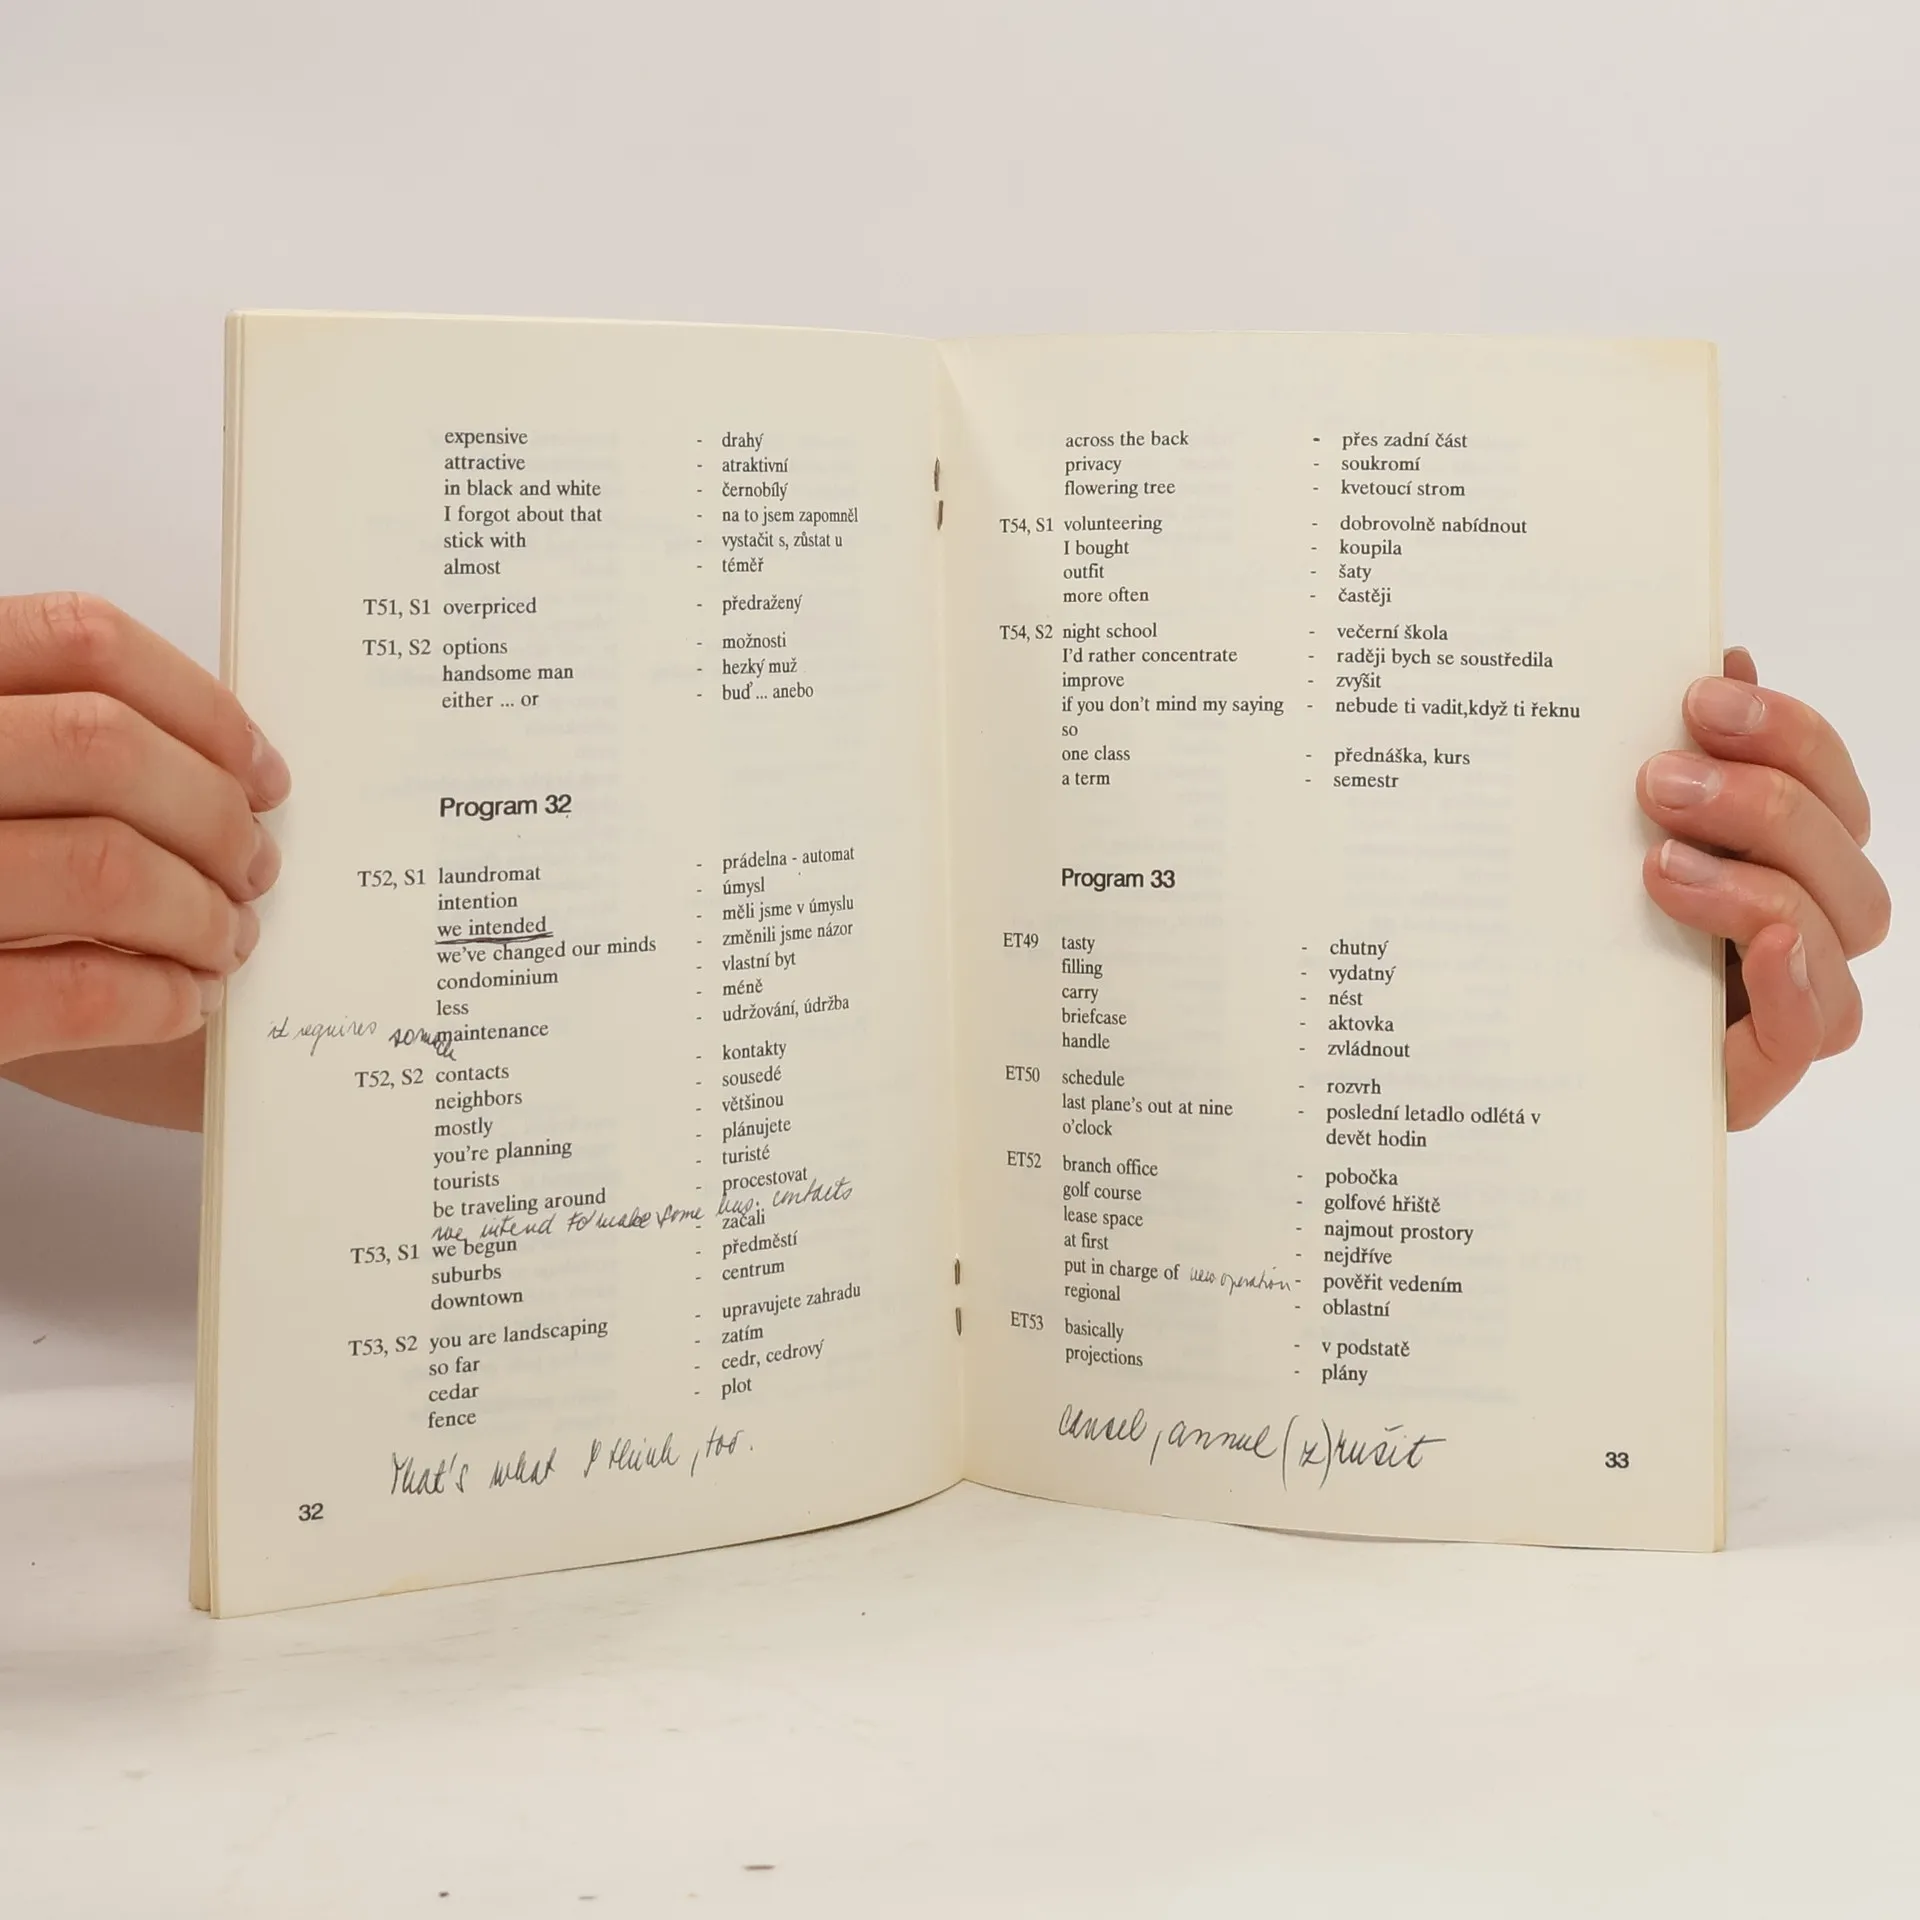 expensive - drahý
attractive - atraktivní
in black and white - černobílý
I forgot about that - na to jsem zapomněl
stick with - vystačit s, zůstat u
almost - téměř
T51, S1 overpriced - předražený
T51, S2 options - možnosti
handsome man - hezký muž
either ... or - buď ... anebo
Program 32
T52, S1 laundromat - prádelna - automat
intention - úmysl
we intended - měli jsme v úmyslu
we've changed our minds - změnili jsme názor
condominium - vlastní byt
less - méně
it requires so much maintenance - udržování, údržba
T52, S2 contacts - kontakty
neighbors - sousedé
mostly - většinou
you're planning - plánujete
tourists - turisté
be traveling around - procestovat
we intend to make some bus. contacts
T53, S1 we begun - začali
suburbs - předměstí
downtown - centrum
T53, S2 you are landscaping - upravujete zahradu
so far - zatím
cedar - cedr, cedrový
fence - plot
That's what I think, too.
32
across the back - přes zadní část
privacy - soukromí
flowering tree - kvetoucí strom
T54, S1 volunteering - dobrovolně nabídnout
I bought - koupila
outfit - šaty
more often - častěji
T54, S2 night school - večerní škola
I'd rather concentrate - raději bych se soustředila
improve - zvýšit
if you don't mind my saying - nebude ti vadit,když ti řeknu
so
one class - přednáška, kurs
a term - semestr
Program 33
ET49 tasty - chutný
filling - vydatný
carry - nést
briefcase - aktovka
handle - zvládnout
ET50 schedule - rozvrh
last plane's out at nine - poslední letadlo odlétá v
o'clock devět hodin
ET52 branch office - pobočka
golf course - golfové hřiště
lease space - najmout prostory
at first - nejdříve
put in charge of new operation - pověřit vedením
regional - oblastní
ET53 basically - v podstatě
projections - plány
cancel, annul (z)rušit
33